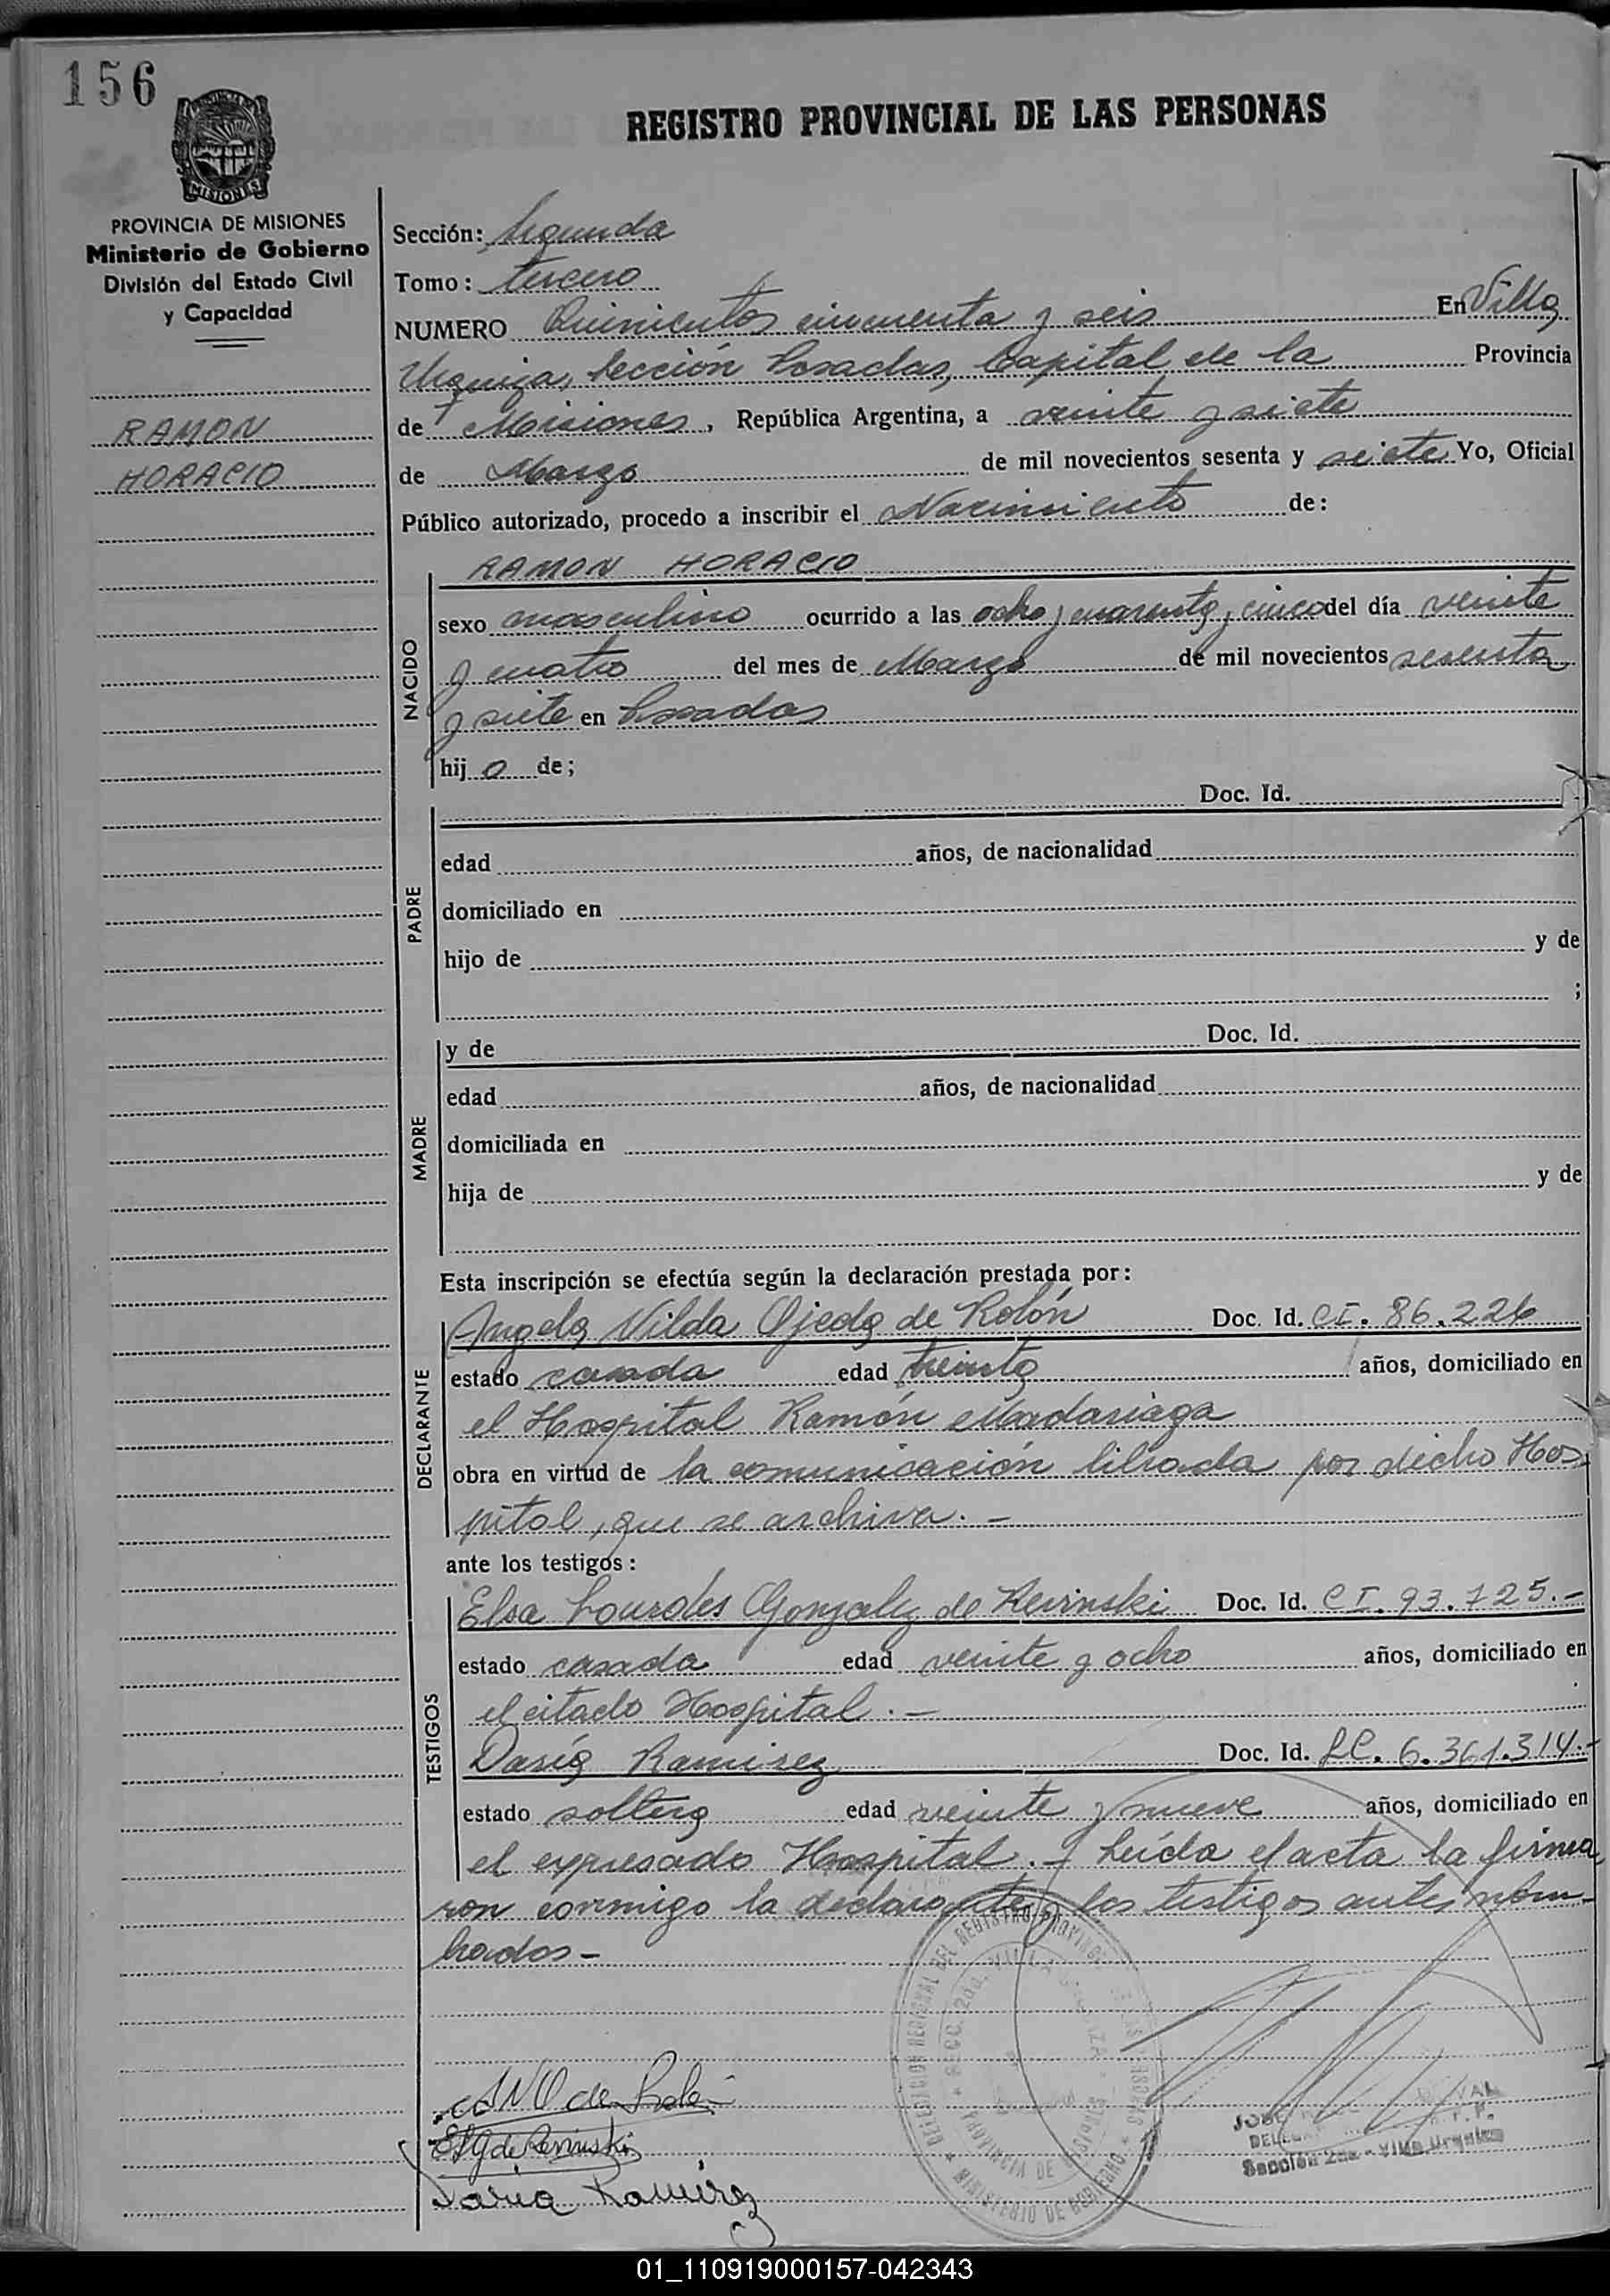 156
REGISTRO PROVINCIAL DE LAS PERSONAS
MISIONES
PROVINCIA DE MISIONES
Ministerio de Gobierno
División del Estado Civil
y Capacidad
RAMON
HORACIO
Sección: Segunda
Tomo: tercero
NUMERO Quinientos cincuenta y seis En Villa
Urquiza, Sección Posadas, Capital de la Provincia
de Misiones, República Argentina, a veinte y siete
de Marzo de mil novecientos sesenta y siete Yo, Oficial
Público autorizado, procedo a inscribir el Nacimiento de:
RAMON HORACIO
NACIDO
sexo masculino ocurrido a las ocho y cuarenta y cinco del día veinte
y cuatro del mes de Marzo de mil novecientos sesenta
y siete en Posadas
hijo de;
PADRE
Doc. Id.
edad años, de nacionalidad
domiciliado en
hijo de y de
;
MADRE
y de Doc. Id.
edad años, de nacionalidad
domiciliada en
hija de y de
Esta inscripción se efectúa según la declaración prestada por:
DECLARANTE
Angela Nilda Ojeda de Rolón Doc. Id. CI. 86.226
estado casada edad treinta años, domiciliado en
el Hospital Ramón Madariaga
obra en virtud de la comunicación librada por dicho Hos-
pital, que se archiva. -
ante los testigos:
TESTIGOS
Elsa Lourdes Gonzalez de Revinski Doc. Id. CI. 93.725.-
estado casada edad veinte y ocho años, domiciliado en
el citado Hospital. -
Daría Ramirez Doc. Id. LC. 6.361.314.-
estado soltera edad veinte y nueve años, domiciliado en
el expresado Hospital. - Leída el acta la firma
ron conmigo la declarante y los testigos antes nom-
brados -
DELEGACION REGIONAL DEL REGISTRO PROVINCIAL DE LAS PERSONAS
SECC. 2da. VILLA URQUIZA
PROVINCIA DE MISIONES
MINISTERIO DE GOBIERNO
ANO de Rolón
ELG de Revinski
Daria Ramirez
JOSE
Sección 2da - Villa Urquiza
01_110919000157-042343